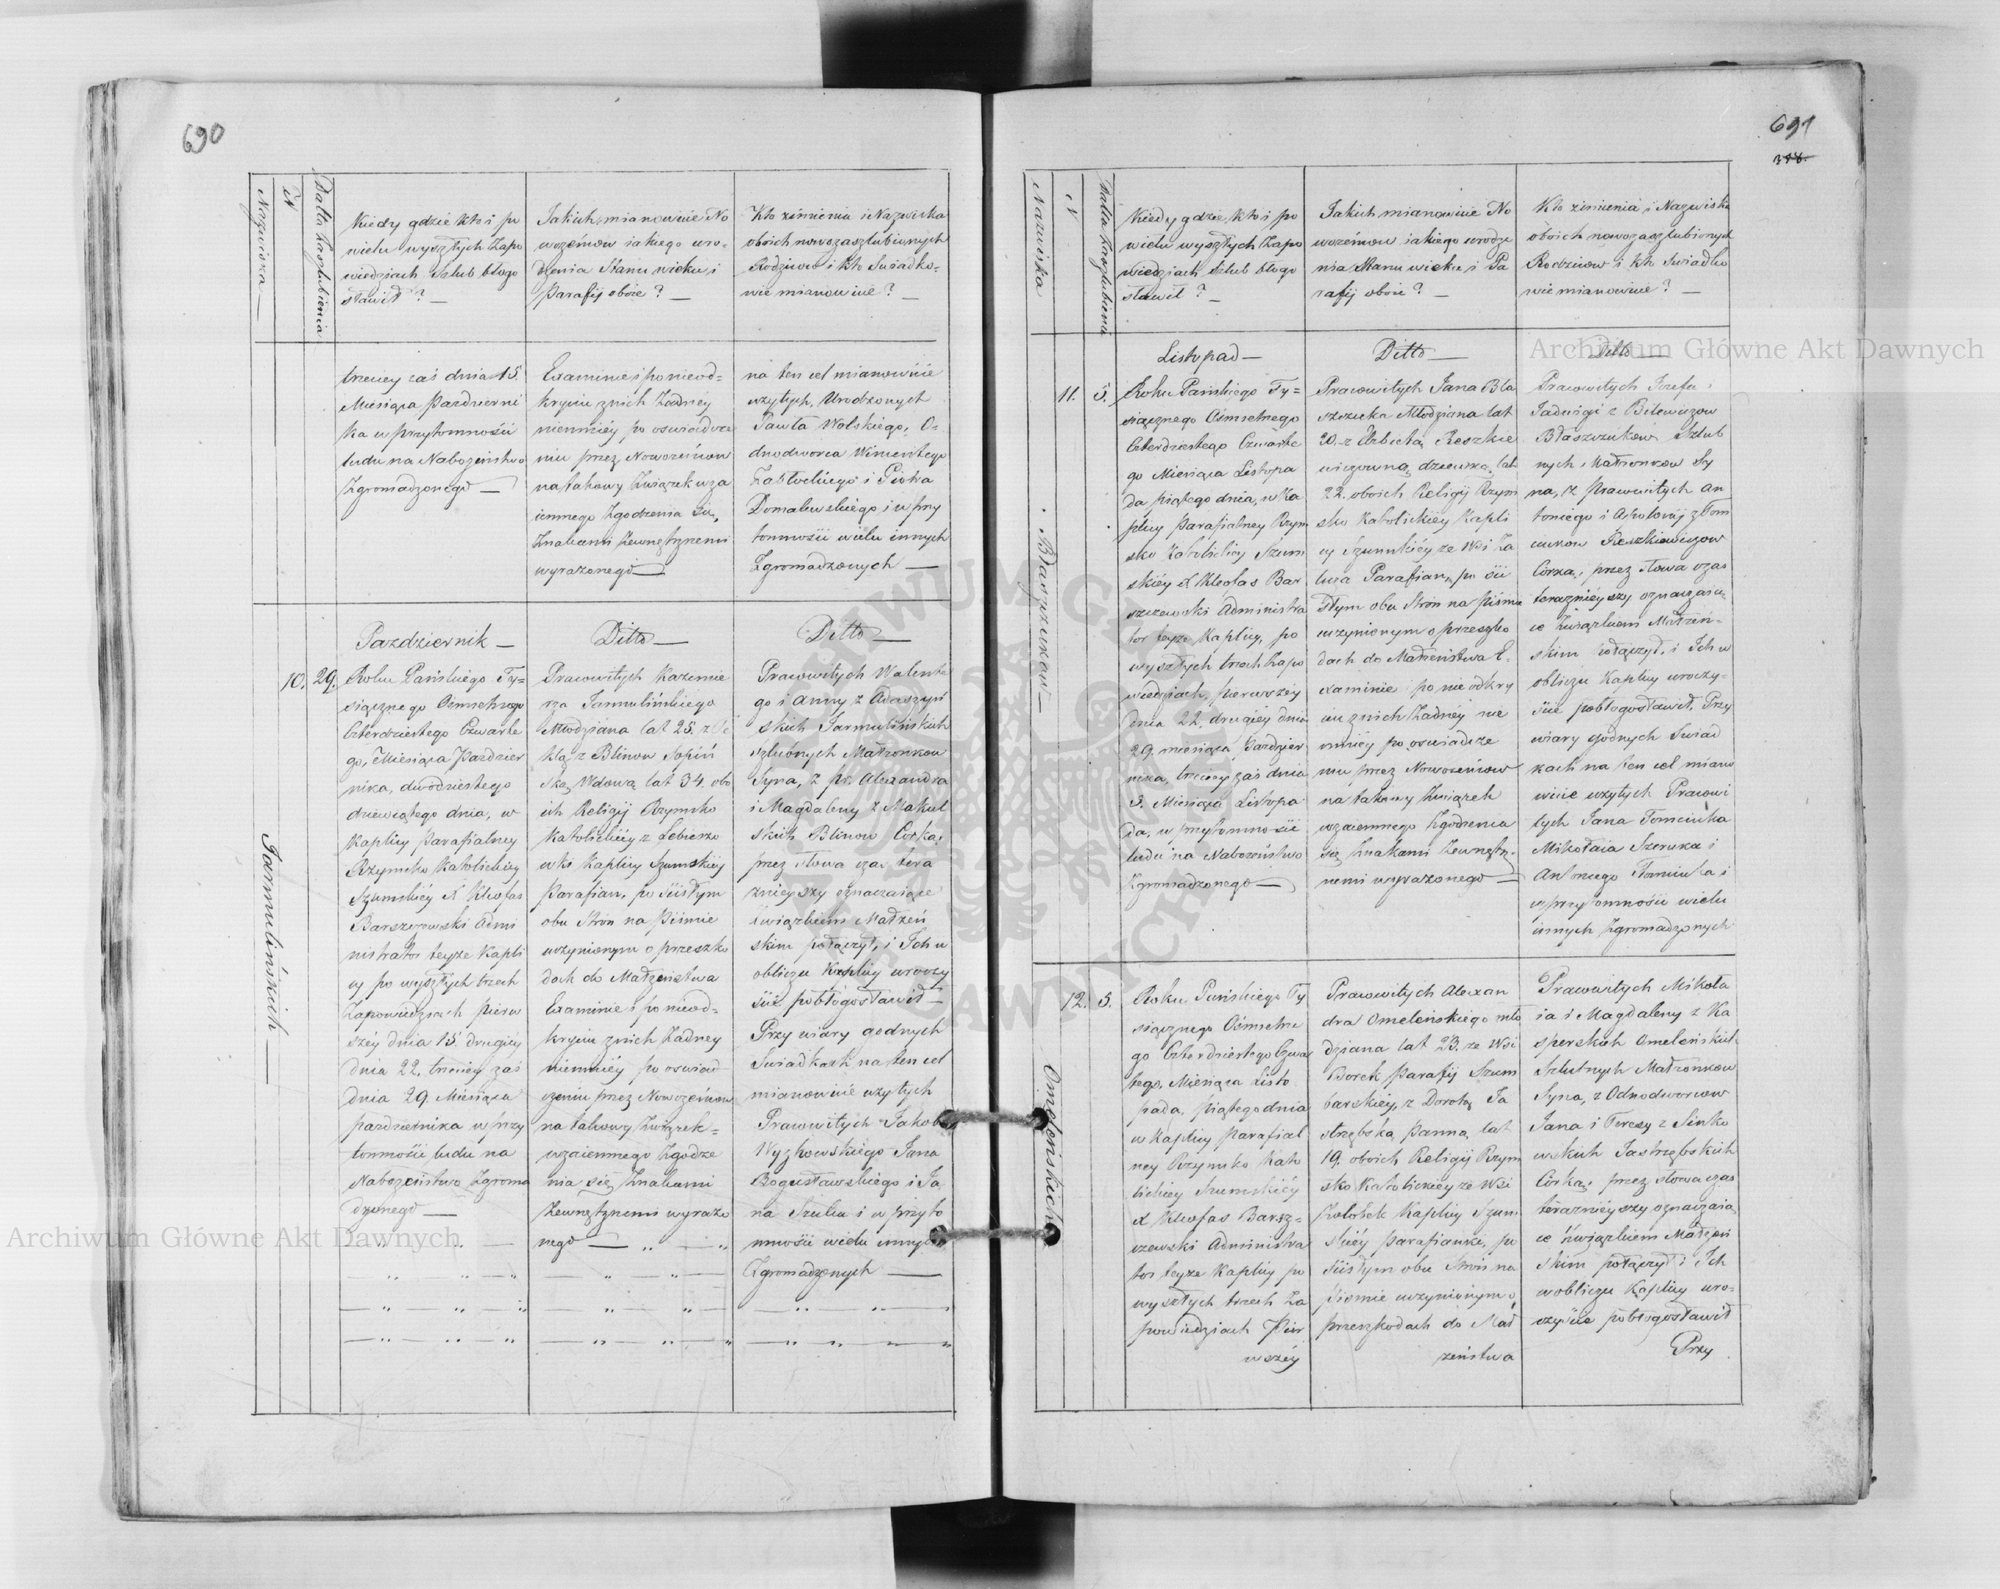 690
Nazwiska
N
Datta Zaszlubienia
Kiedy gdzie kto i po
wielu wyszłych Zapo
wiedziach szlub błogo
sławił? —
Jakich mianowicie No
wożeńcow iakiego uro-
dzenia Stanu wieku i
Parafij oboie? —
Kto z imienia i Nazwiska
oboich nowozaszlubionych
Rodzicow i kto Swiadko-
wie mianowicie? —
trzeciey zaś dnia 15.
Miesiąca Pazdzierni
ka w przytomności
ludu na Nabożeństwo
Zgromadzonego —
Examinie i po nieod-
kryciu z nich Żadney
niemniéy po oswiadcze
niu przez Nowożeńcow
na takowy Związek wza
iemnego Zgodzenia się,
Znakami Zewnętrznemi
wyrażonego —
na ten cel mianowicie
użytych, Urodzonych
Pawła Wolskiego, O-
dnodworca Wincentego
Zabłockiego i Piotra
Domalewskiego i w przy
tomności wielu innych
Zgromadzonych —
Jarmulińskich —
10.
29.
Pazdziernik —
Roku Pańskiego Ty-
siącznego Ośmsetnego
Czterdziestego Czwarte
go, Miesiąca Pazdzier
nika, dwódziestego
dziewiątego dnia, w
Kaplicy Parafialney
Rzymsko Katolickiey
Szumskiéy X Kleofas
Barszczewski Admi
nistrator teyże Kapli
cy po wyszłych trzech
Zapowiedziach pierw
széy dnia 15 drugiéy
dnia 22. trzeciey zaś
dnia 29 Miesiąca
pazdziernika w przy
tomności ludu na
Nabożeństwo Zgroma
dzonego —
Ditto —
Pracowitych Kazimie
rza Jarmulińskiego
Młodziana lat 25. z Te
klą z Blinow
ską Wdową lat 34. obo
ich Religij Rzymsko
Katolickiéy z
wki Kaplicy Szumskiéy
Parafian, po ścisłym
obu Stron na Piśmie
uczynionym o przeszko
dach do Małżeństwa
Examinie i po nieod-
kryciu z nich Żadney
niemniéy po oswiad
czeniu przez Nowożeńcow
na takowy Związek-
wzaiemnego Zgodze
nia się Znakami
Zewnętrznemi wyrażo
nego —
Ditto —
Pracowitych Walente
go i Anny z
skich Jarmulińskich
szlubnych Małżonkow
Syna, z pr. Alexandra
i Magdaleny z Makul
skich Blinow Córką,
przez słowa czas tera
znieyszy oznaczaiące
związkiem Małżeń
skim połączył, i Ich w
obliczu Kaplicy uroczy
ście pobłogosławił —
Przy wiary godnych
Swiadkach na ten cel
mianowicie użytych
Pracowitych Jakoba
Wyzkowskiego Jana
Bogusławskiego i Ja
na Szulca i w przyto
mności wielu innych
Zgromadzonych —
691
348.
Nazwiska
N
Datta Zaszlubienia
Kiedy gdzie kto i po
wielu wyszłych Zapo
wiedziach szlub błogo
sławił? —
Jakich mianowicie No
wożeńcow iakiego urodze
nia Stanu wieku i Pa
rafij oboie? —
Kto z imienia i Nazwiska
oboich nowozaszlubionych
Rodzicow i kto Swiadko
wie mianowicie? —
Błaszczukow —
11.
5.
Listopad —
Roku Pańskiego Ty-
siącznego Ośmsetnego
Czterdziestego Czwarte
go Miesiąca Listopa
da piątego dnia, w Ka
plicy Parafialney Rzym
sko Katolickiey Szum
skiéy X Kleofas Bar
szczewski Administra
tor teyże Kaplicy, po
wyszłych trzech Zapo
wiedziach, pierwszéy
dnia 22. drugiéy dnia
29. miesiąca Pazdzier
nika, trzeciey zaś dnia
3. Miesiąca Listopa
da, w przytomności
ludu na Nabożeństwo
Zgromadzonego —
Ditto —
Pracowitych Jana Bła
szczuka Młodziana lat
20. z Elżbietą Reszkie
wiczowną dziewką, lat
22. oboich Religij Rzym
sko Katolickiéy Kapli
cy Szumskiéy ze Wsi Za
Parafian, po ści
słym obu Stron na piśmie
uczynionym o przeszko
dach do Małżeństwa E-
xaminie po nieodkry
ciu z nich Żadnéy nie
mniéy po oswiadcze
niu przez Nowożeńcow
na takowy Związek
wzaiemnego Zgodzenia
się Znakami Zewnętrz-
nemi wyrażonego —
Ditto —
Pracowitych Jozefa i
Jadwigi z Bilewiczow
Błaszczukow Szlub
nych Małżonkow Sy
na, z Pracowitych An
toniego i Apolonij z Tom
cukow Reszkiewiczow
Córką, przez słowa czas
teraznieyszy oznaczaią
ce Związkiem Małżeń-
skim połączył, i Ich w
obliczu Kaplicy uroczy-
ście pobłogosławił. Przy
wiary godnych Swiad
kach na ten cel miano
wicie użytych Pracowi
tych Jana Tomciuka
Mikołaia Szewka i
Antoniego Tomciuka i
w przytomności wielu
innych Zgromadzonych
Omeleńskich
12.
5.
Roku Pańskiego Ty
siącznego Ośmsetne
go Czterdziestego Czwar
tego, Miesiąca Listo
pada, piątego dnia
w Kaplicy Parafial
ney Rzymsko Kato
lickiey Szumskiéy
X Kleofas Barsz-
czewski Administra
tor teyże Kaplicy po
wyszłych trzech Za
powiedziach Pier
wszéy
Pracowitych Alexan
dra Omeleńskiego mło
dziana lat 23. ze Wsi
Borek Parafij Szum
barskiéy, z Dorotą Ja
strzębską Panną lat
19. oboich Religij Rzym
sko Katolickiey ze Wsi
Kaplicy Szum
skiéy Parafianki, po
ścisłym obu Stron na
Piśmie uczynionym o
przeszkodach do Mał
żeństwa
Pracowitych Mikoła
ia i Magdaleny z Ka
sperskich Omeleńskich
Szlubnych Małżonkow
Syna, z Odnodworcow
Jana i Teresy z Sinko
wskich Jastrzębskich
Córką, przez słowa czas
teraznieyszy oznaczaią
ce związkiem Małżeń
skim połączył i Ich
w obliczu Kaplicy uro-
czyście pobłogosławił
Przy
Archiwum Główne Akt Dawnych
Archiwum Główne Akt Dawnych